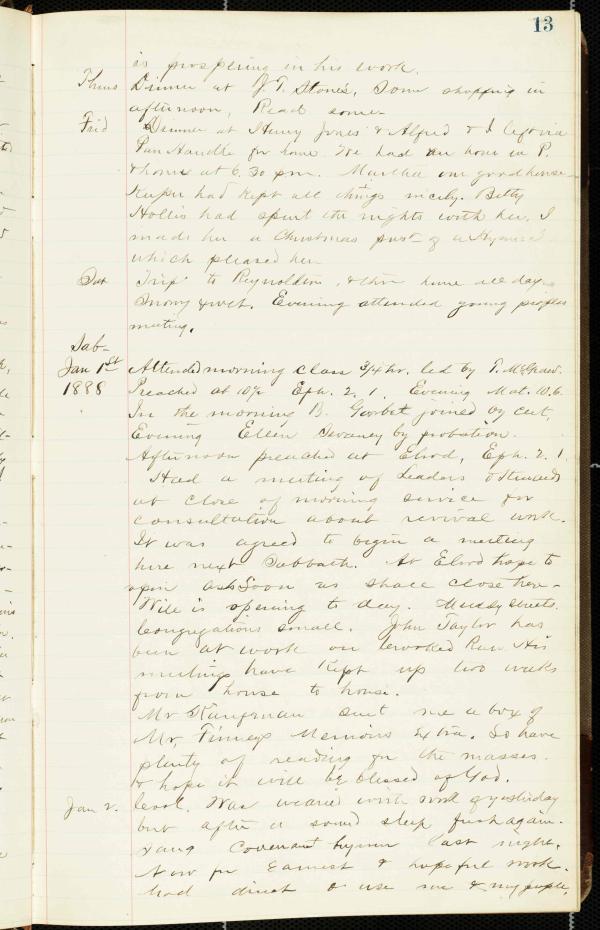 13
is prospering in his work.
Thurs Dinner at J. T. Stone's, Some shopping in
afternoon, Read some.
Frid Dinner at Henry Jones' & Alfred & I left via
Pan Handle for home. We had an hour in P.
& home at 6.30 pm. Martha our good house-
keeper had kept all things nicely. Betty
Hollis had spent the nights with her. I
made her a Christmas pres't of a Hymnal
which pleased her.
Sat Trip to Reynoldton, & then home all day.
Snowy & wet. Evening attended young peoples
meeting.
Sab-
Jan 1st Attended morning class 3/4 hr. led by T. McGraw.
1888 Preached at 10 1/2 Eph. 2. 1. Evening Mat. 10.6.
In the morning B. joined by cert,
Evening Ellen by probation.
Afternoon preached at Elrod, Eph. 2. 1.
Had a meeting of Leaders & Stewards
at close of morning service for
consultation about revival work.
It was agreed to begin a meeting
here next Sabbath. At Elrod hope to
open as soon as shall close here.
Wile is opening to day. Muddy streets.
Congregations small. John Taylor has
been at work on Crooked Run. His
meetings have kept up two weeks
from house to house.
Mr Kaufman sent me a box of
Mr. Finney's Memoirs extra. So have
plenty of reading for the masses.
& hope it will be blessed of God.
Jan 2. Cool. Was wearied with work of yesterday
but after a sound sleep fresh again.
Sang Covenant hymn last night.
Now for Earnest & hopeful work.
Lord direct & use me & my people.